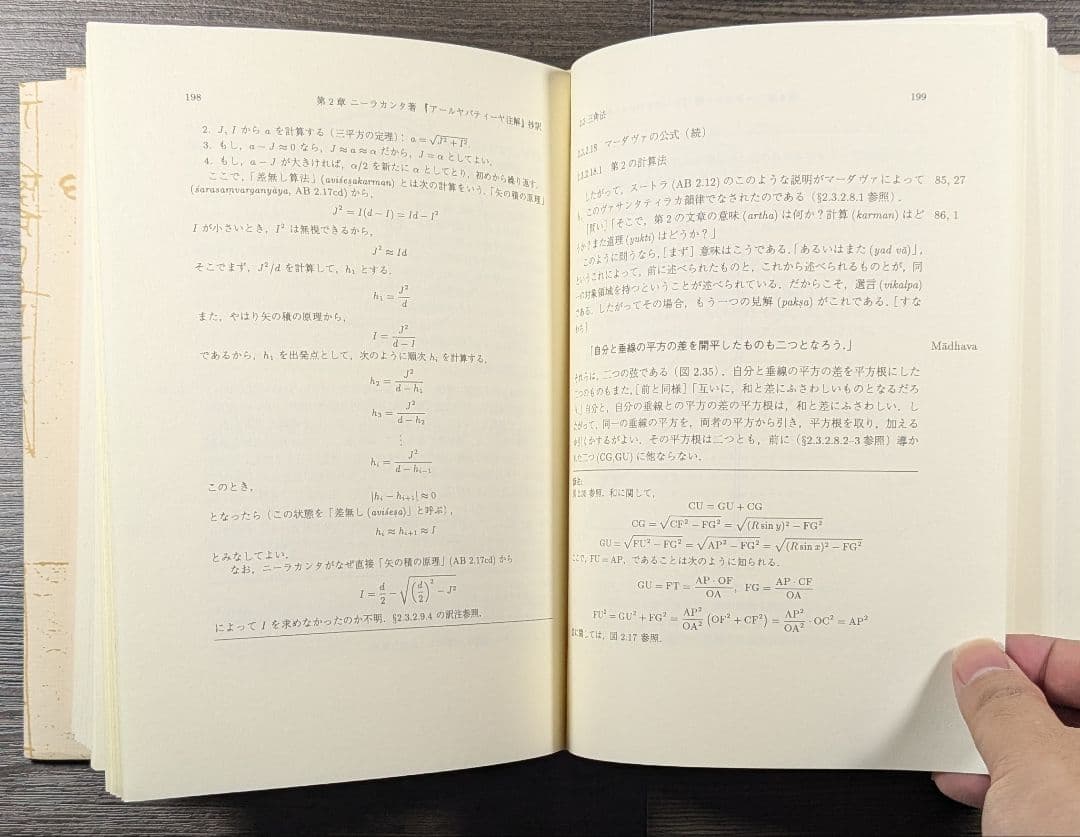 198
第2章 ニーラカンタ著『アールヤバティーヤ注解』抄訳
2. J, I から a を計算する（三平方の定理）: a = √(J² + I²).
3. もし, a − J ≈ 0 なら, J ≈ a ≈ α だから, J = α としてよい.
4. もし, a − J が大きければ, α/2 を新たに α としてとり, 初めから繰り返す.
ここで,「差無し算法」(aviśeṣakarman) とは次の計算をいう.「矢の積の原理」
(śarasaṃvarganyāya, AB 2.17cd) から,
J² = I(d − I) = Id − I²
I が小さいとき, I² は無視できるから,
J² ≈ Id
そこでまず, J²/d を計算して, h₁ とする.
h₁ = J²/d
また, やはり矢の積の原理から,
I = J²/(d − I)
であるから, h₁ を出発点として, 次のように順次 hᵢ を計算する.
h₂ = J²/(d − h₁)
h₃ = J²/(d − h₂)
⋮
hᵢ = J²/(d − hᵢ₋₁)
このとき,
|hᵢ − hᵢ₊₁| ≈ 0
となったら（この状態を「差無し (aviśeṣa)」と呼ぶ）,
hᵢ ≈ hᵢ₊₁ ≈ I
とみなしてよい.
なお, ニーラカンタがなぜ直接「矢の積の原理」(AB 2.17cd) から
I = d/2 − √((d/2)² − J²)
によって I を求めなかったのか不明. §2.3.2.9.4 の訳注参照.
199
2.3 三角法
2.3.2.18 マーダヴァの公式（続）
2.3.2.18.1 第2の計算法
したがって, スートラ (AB 2.12) のこのような説明がマーダヴァによって 85, 27
も, このヴァサンタティラカ韻律でなされたのである（§2.3.2.8.1 参照）.
［問い］「そこで, 第2の文章の意味 (artha) は何か？計算 (karman) はど 86, 1
うか？また道理 (yukti) はどうか？」
このように問うなら,［まず］意味はこうである.「あるいはまた (yad vā)」,
というこれによって, 前に述べられたものと, これから述べられるものとが, 同
一の対象領域を持つということが述べられている. だからこそ, 選言 (vikalpa)
である. したがってその場合, もう一つの見解 (pakṣa) がこれである.［すな
わち］
「自分と垂線の平方の差を開平したものも二つとなろう.」 Mādhava
それらは, 二つの弦である（図 2.35）. 自分と垂線の平方の差を平方根にした
二つのものもまた,［前と同様］「互いに, 和と差にふさわしいものとなるだろ
う」自分と, 自分の垂線との平方の差の平方根は, 和と差にふさわしい. し
たがって, 同一の垂線の平方を, 両者の平方から引き, 平方根を取り, 加える
か引くかするがよい. その平方根は二つとも, 前に（§2.3.2.8.2–3 参照）導か
れた二つ (CG,GU) に他ならない.
参照. 和に関して,
CU = GU + CG
CG = √(CF² − FG²) = √((R sin y)² − FG²)
GU = √(FU² − FG²) = √(AP² − FG²) = √((R sin x)² − FG²)
ここで, FU = AP, であることは次のように知られる.
GU = FT = AP · OF/OA, FG = AP · CF/OA
FU² = GU² + FG² = AP²/OA² (OF² + CF²) = AP²/OA² · OC² = AP²
差に関しては, 図 2.17 参照.